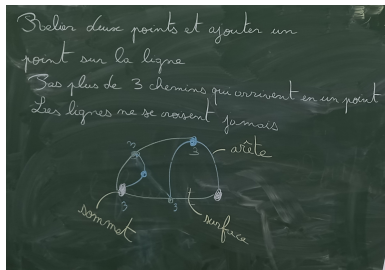 Relier deux points et ajouter un
point sur la ligne
Pas plus de 3 chemins qui arrivent en un point
Les lignes ne se croisent jamais
3
3
arête
3
3
sommet
surface